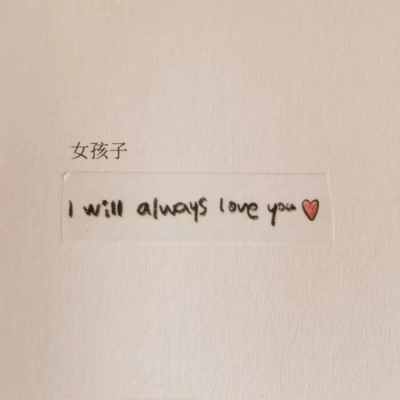 女孩子
I will always love you♥